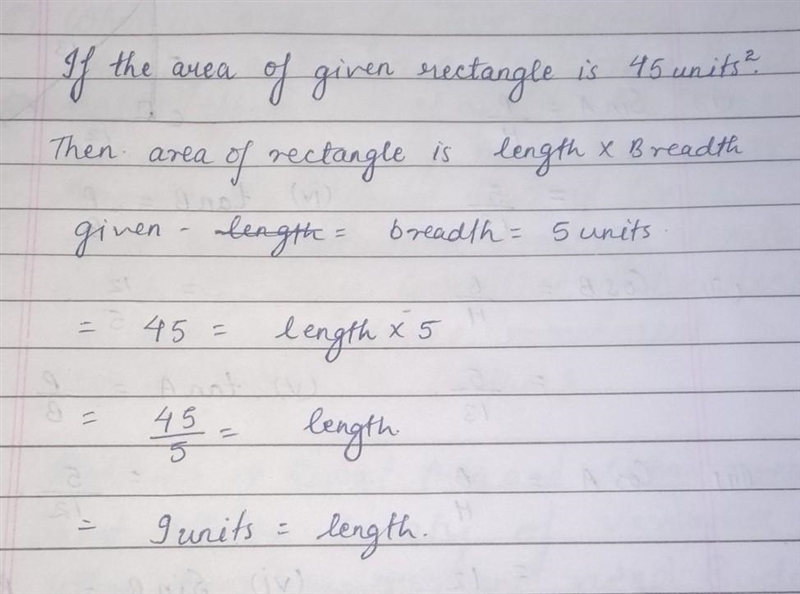 If the area of given rectangle is 45 units².
Then area of rectangle is length × Breadth
given - length = breadth = 5 units
= 45 = length × 5
= 45/5 = length.
= 9 units = length.